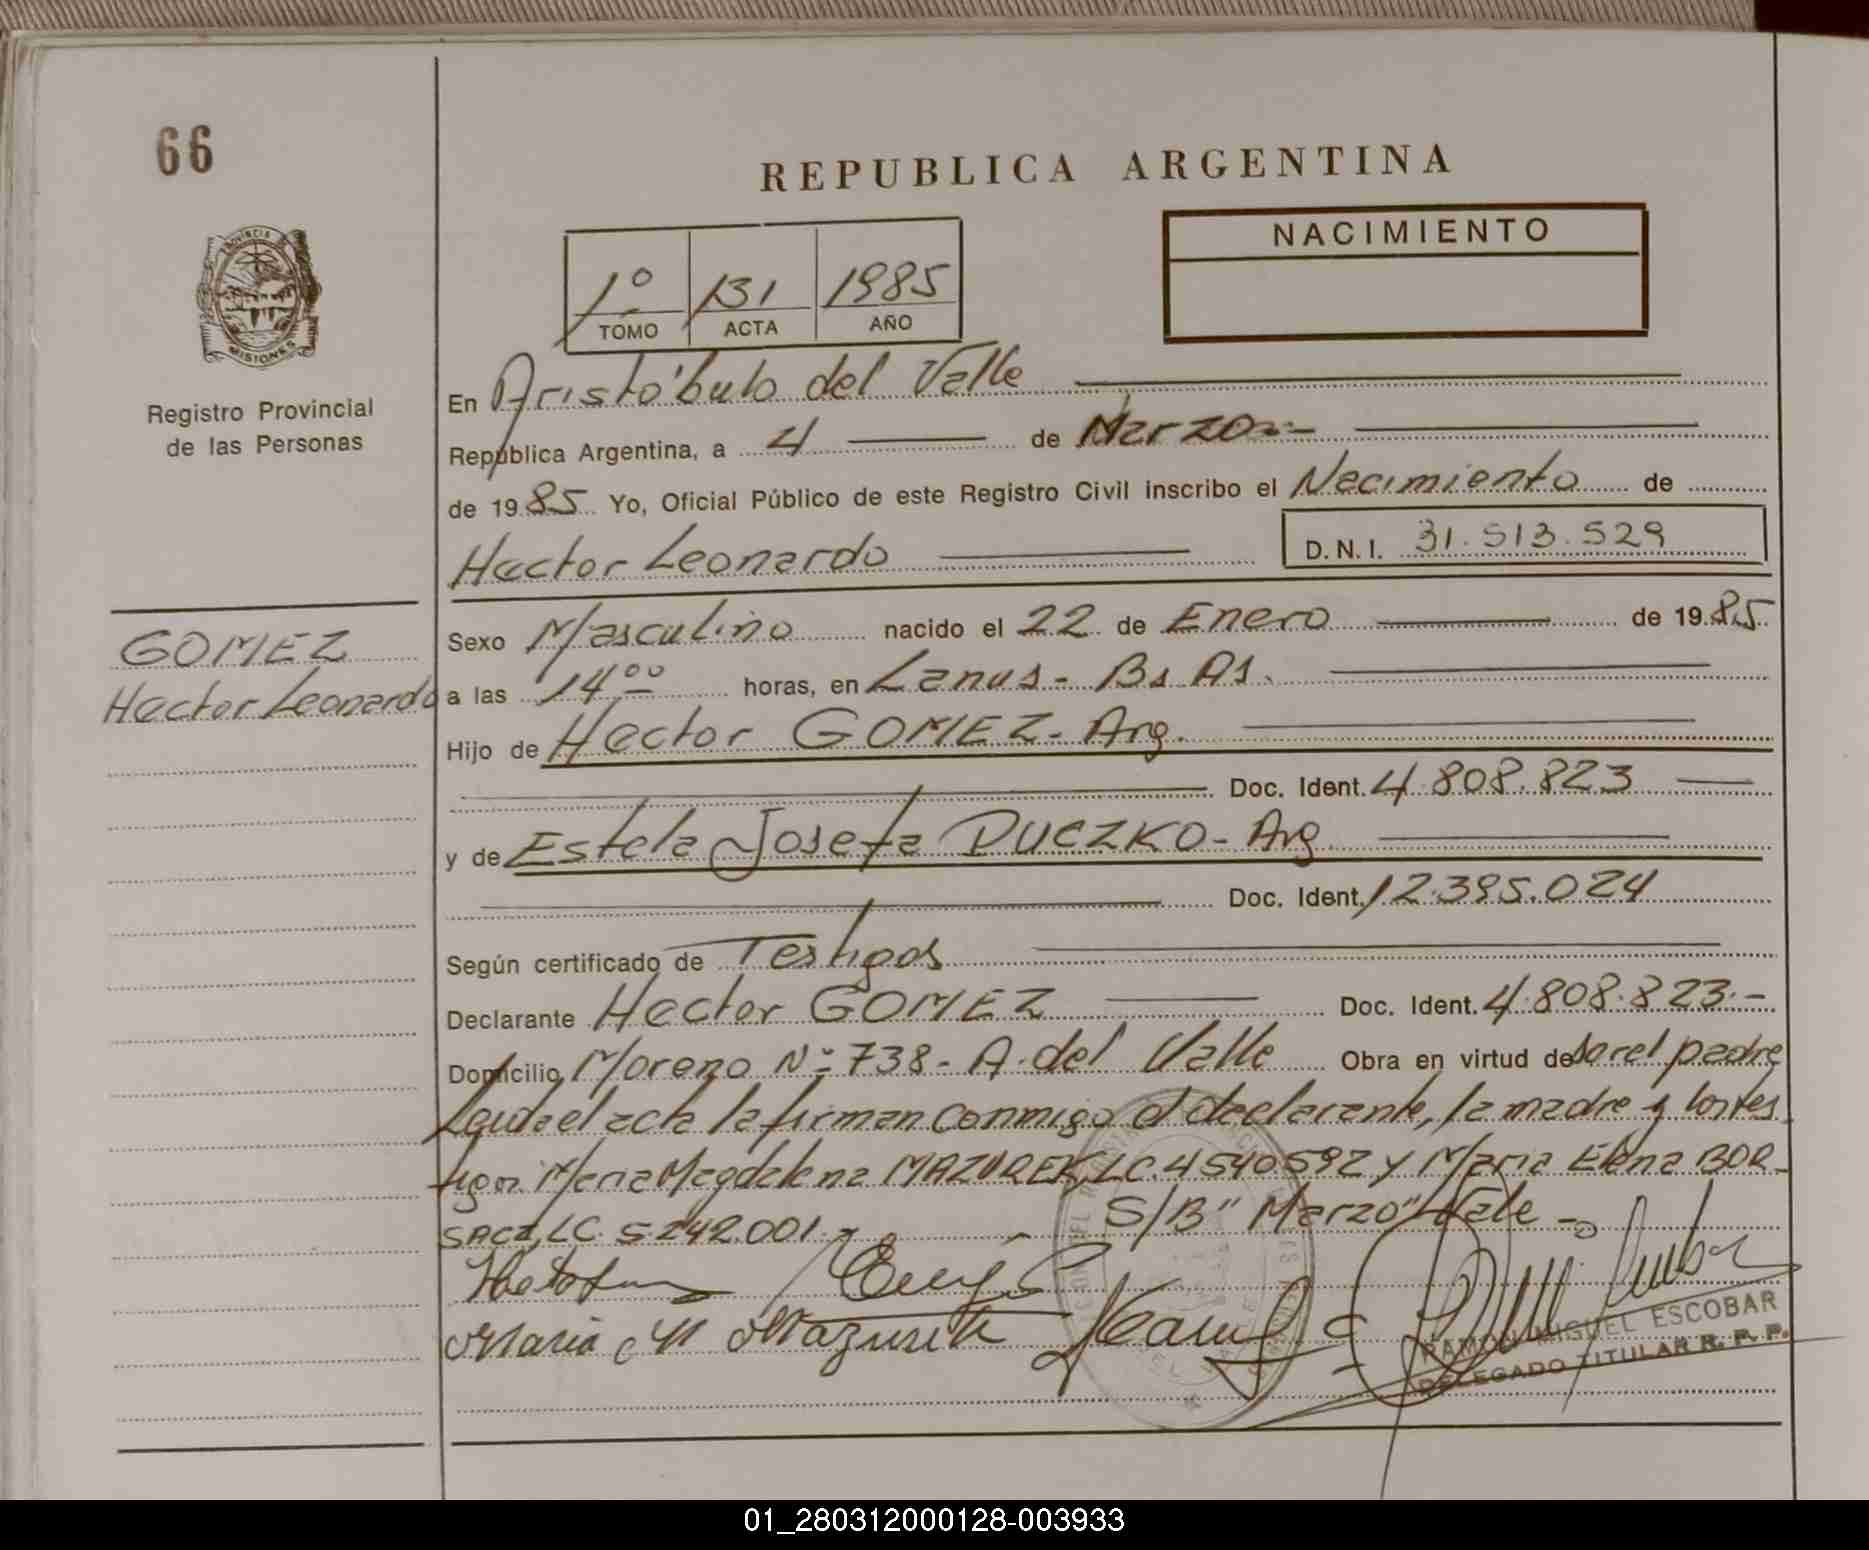 66
REPUBLICA ARGENTINA
NACIMIENTO
1º 131 1985
TOMO ACTA AÑO
PROVINCIA DE
MISIONES
Registro Provincial
de las Personas
En Aristóbulo del Valle
República Argentina, a 4 de Marzo
de 1985 Yo, Oficial Público de este Registro Civil inscribo el Nacimiento de
Hector Leonardo D.N.I. 31.513.529
GOMEZ
Hector Leonardo
Sexo Masculino nacido el 22 de Enero de 1985
a las 14⁰⁰ horas, en Lanus - Bs As.
Hijo de Hector GOMEZ - Arg.
Doc. Ident. 4.808.823
y de Estela Josefa DUCZKO - Arg
Doc. Ident. 12.395.024
Según certificado de Testigos
Declarante Hector GOMEZ Doc. Ident. 4.808.823.-
Domicilio Moreno Nº 738 - A. del Valle Obra en virtud de ser el padre
Leida el acta la firman conmigo el declarante, la madre y los tes
tigos Maria Magdalena MAZUREK LC. 4540592 y Maria Elena BOR
LC. 5242.001. S/B "Marzo" Vale
Maria M Mazurek
RAMON MIGUEL ESCOBAR
DELEGADO TITULAR R. P. P.
01_280312000128-003933